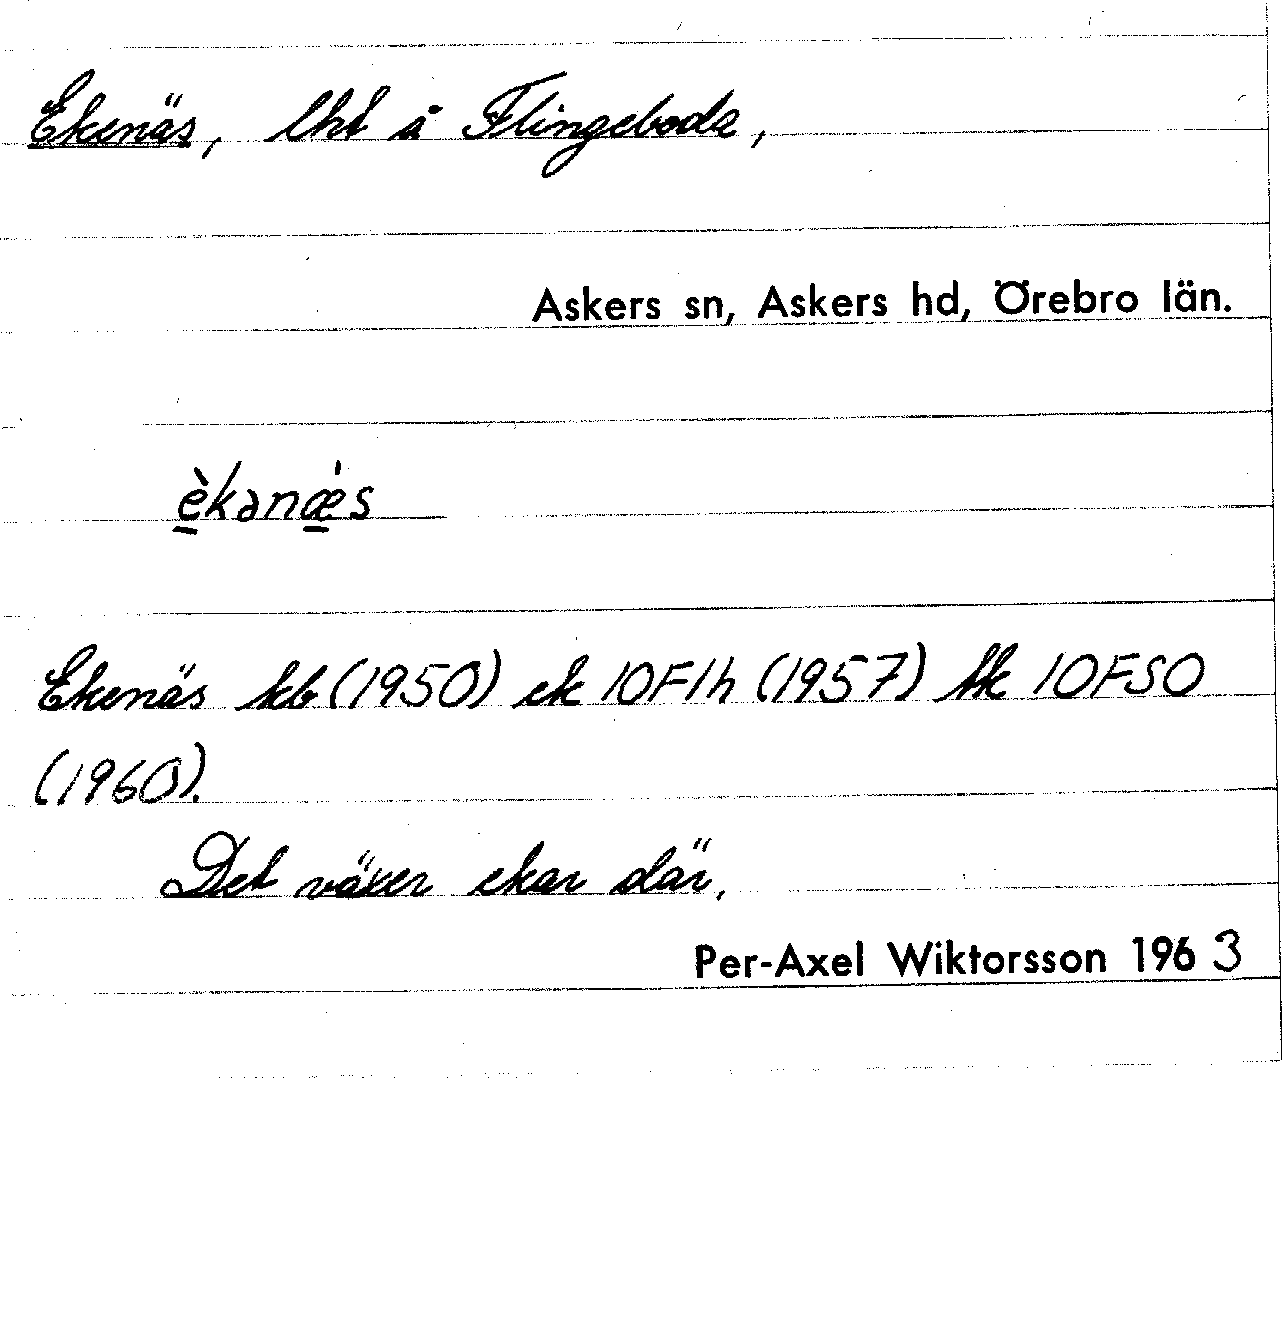 Ekenäs, lht å Flingeboda,
Askers sn, Askers hd, Örebro län.
èkənæ̀s
Ekenäs kb (1950) ek 10F1h (1957) tk 10FSO
(1960).
Det växer ekar där.
Per-Axel Wiktorsson 1963